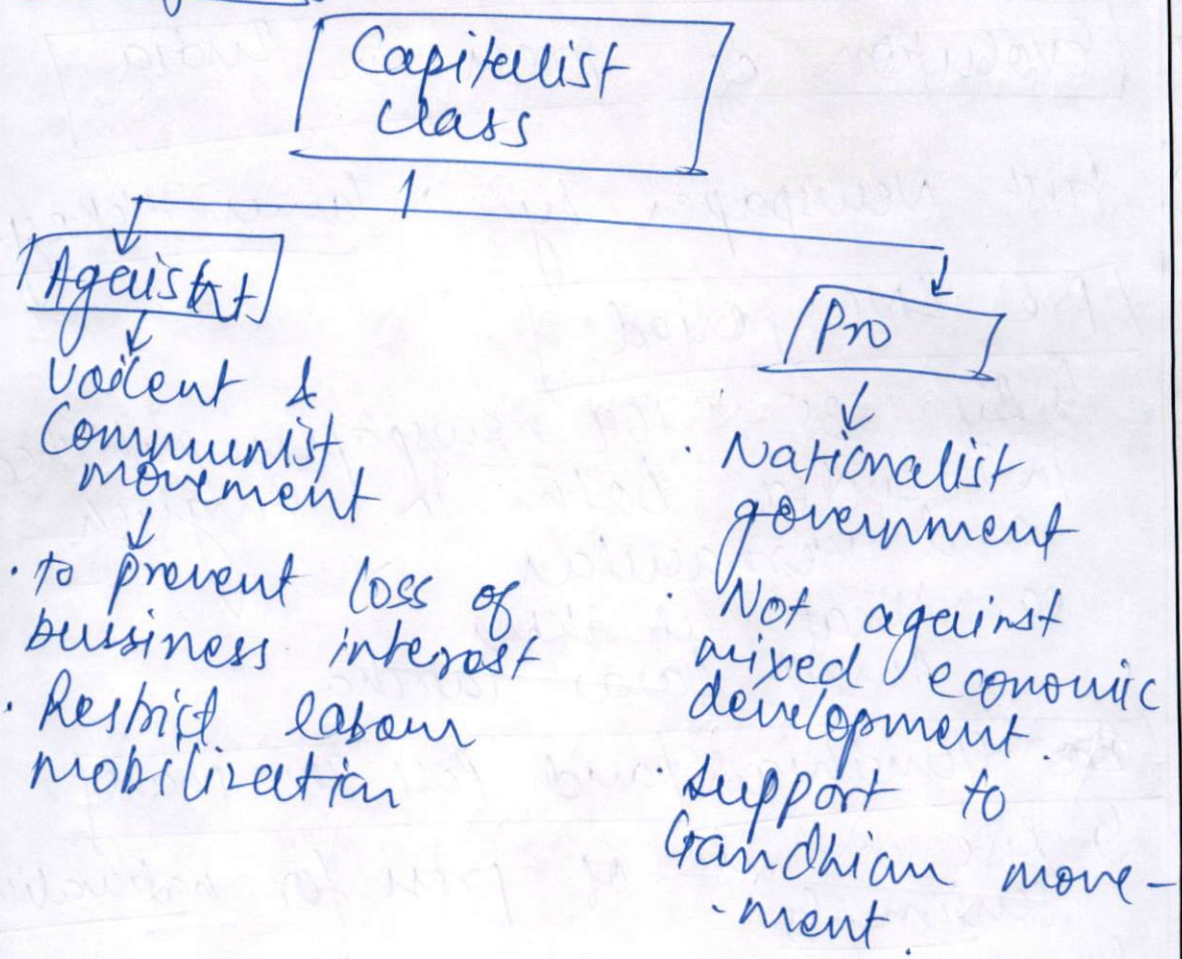 Capitalist
class
Against
Voilent &
Communist
movement
· to prevent loss of
bussiness interest
· Restrict labour
mobilization
Pro
· Nationalist
government
· Not against
mixed economic
development.
· support to
Gandhian move-
-ment.